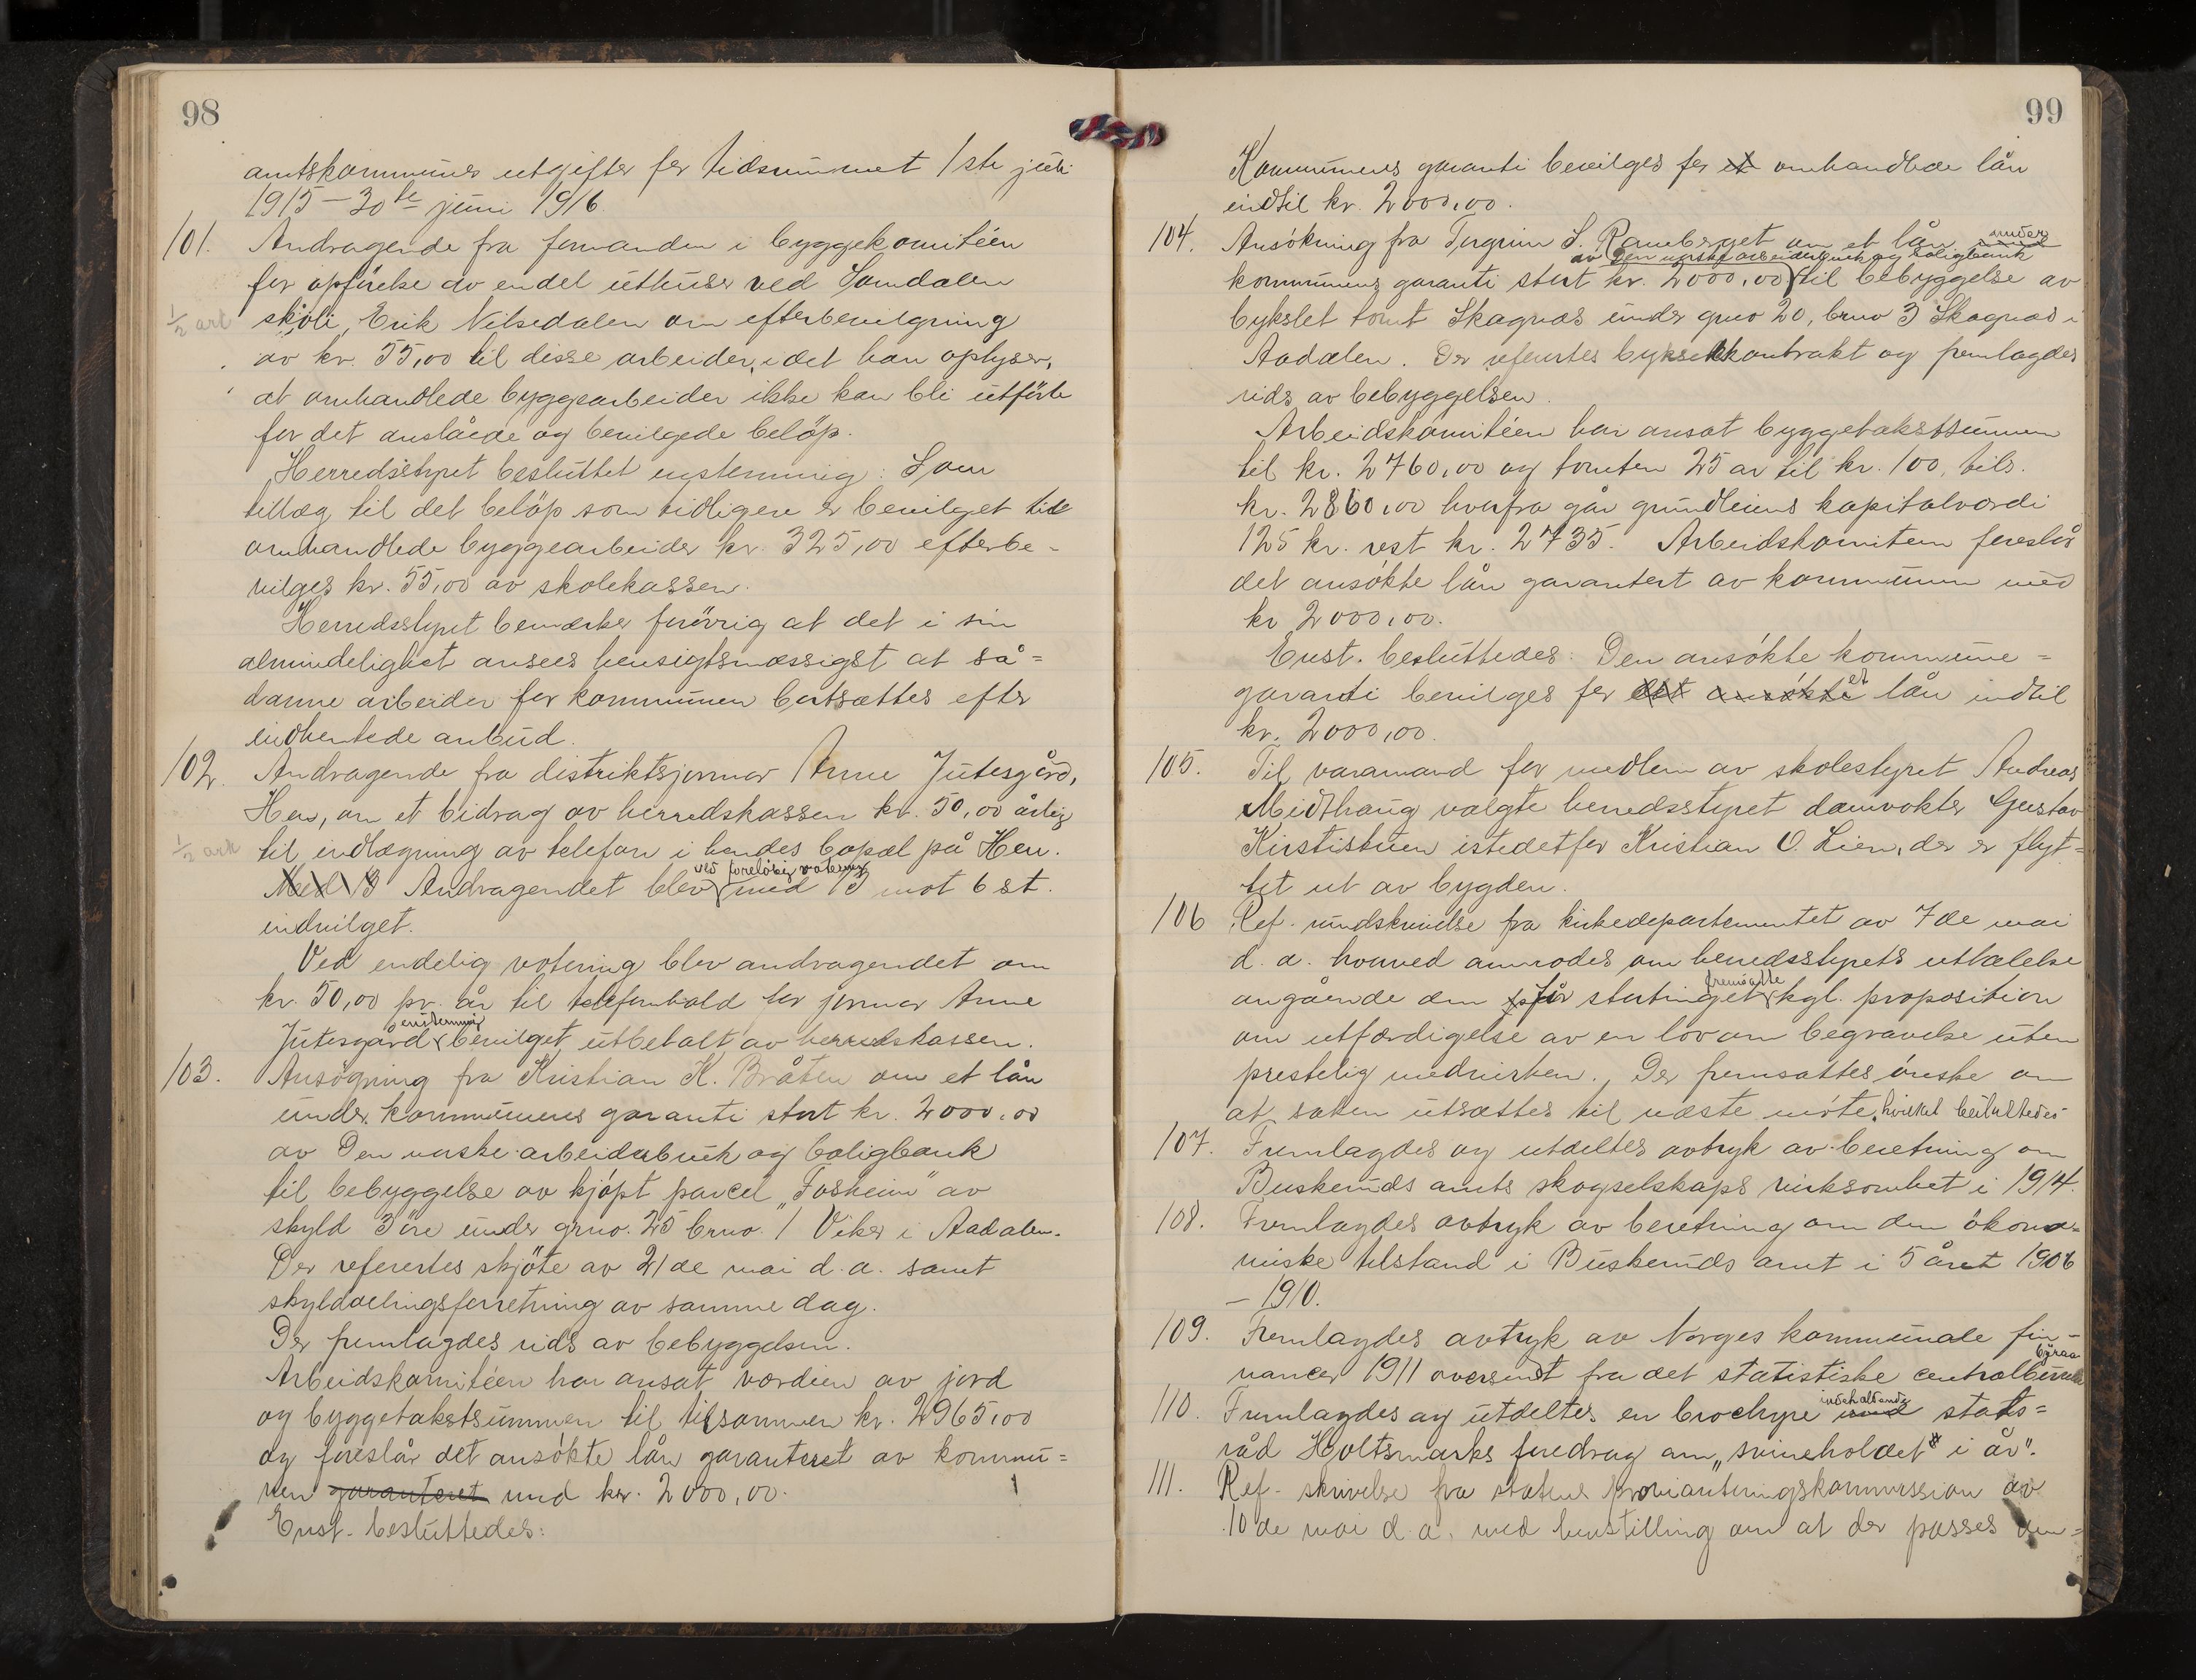 98
amtskommunes utgifter for tidsrummet 1ste juli
1915 – 30te juni 1916.
101. Andragende fra formanden i byggekomitéen
for opförelse av endel uthuser ved Somdalen
1/2 ark
skoli, Erik Nilsedalen om efterbevilgning
av kr. 55,00 til disse arbeider, idet han oplyser,
at omhandlede byggearbeider ikke kan bli utförte
for det anslåede og bevilgede belöp.
Herredsstyret besluttet enstemmig: Som
tillæg til det belöp som tidligere er bevilget til
omhandlede byggearbeider kr. 325,00 efterbe-
vilges kr. 55,00 av skolekassen.
Herredsstyret bemerker forövrig at det i sin
almindelighet ansees hensigtsmæssigst at så=
danne arbeider for kommunen bortsættes efter
indhentede anbud.
102. Andragende fra distriktsjormor Anne Jutesgård,
Hen, om et bidrag av herredskassen kr. 50,00 årlig
1/2 ark
til indlægning av telefon i hendes bopæl på Hen.
ved foreløbig votering
Med 13 Andragendet blev med 13 mot 6 st.
indvilget.
Ved endelig votering blev andragendet om
kr. 50,00 pr. år til telefonhold for jormor Anne
enstemmig
Jutesgård bevilget utbetalt av herredskassen.
103. Ansögning fra Kristian K. Bråten om et lån
under kommunens garanti stort kr. 2000,00
av Den norske arbeiderbruk og boligbank
til bebyggelse av kjöpt parcel „Fosheim" av
skyld 3 öre under grno. 25 brno. 1 Viker i Aadalen.
Der refertes skjöte av 21de mai d.a. samt
skylddelingsforretning av samme dag.
Der fremlagdes rids av bebyggelsen.
Arbeidskomitéen har ansat værdien av jord
og byggetakstsummen til tilsammen kr. 2965,00
og foreslår det ansökte lån garanteret av kommu=
nen garanteret med kr. 2000,00.
Enst. besluttedes:
99
Kommunens garanti bevilges for et omhandlede lån
indtil kr. 2000,00.
under
104. Ansökning fra Torgrim S. Ramberget om et lån
av Den norske arbeiderbruk og boligbank
kommunens garanti stort kr. 2000,00 til bebyggelse av
bykslet tomt Skagnæs under grno 20, brno 3 Skagnæs i
Aadalen. Der refertes bykselkontrakt og fremlagdes
rids av bebyggelsen.
Arbeidskomitéen har ansat byggetakstsummen
til kr. 2760,00 og tomten 25 ar til kr. 100, tils.
kr. 2860,00 hvorfra går grundleiens kapitalværdi
125 kr. rest kr. 2735. Arbeidskomiteen foreslår
det ansökte lån garantert av kommunen med
kr 2000,00.
Enst. besluttedes: Den ansökte kommune=
et
garanti bevilges for det ansökte lån indtil
kr. 2000,00.
105. Til varamand for medlem av skolestyret Andreas
Midthaug valgte herredsstyret damvokter Gustav
Kirstistuen istedetfor Kristian O. Lien, der er flyt=
tet ut av bygden.
106 Ref. rundskrivelse fra kirkedepartementet av 7de mai
d.a. hvorved anmodes om herredsstyrets uttalelse
fremsatte
angående den for stortinget kgl. proposition
om utfærdigelse av en lov om begravelse uten
prestelig medvirken. Der fremsattes önske om
at saken utsættes til næste möte, hvilket besluttedes.
107. Fremlagdes og utdeltes avtryk av beretning om
Buskeruds amts skogselskaps virksomhet i 1914.
108. Fremlagdes avtryk av beretning om den ökono=
miske tilstand i Buskeruds amt i 5 året 1906
– 1910.
109. Fremlagdes avtryk av Norges kommunale fin-
byraa
nancer 1911 oversendt fra det statistiske centralbureau
indeholdende
110. Fremlagdes og utdeltes en brochyre med stats=
råd Holtsmarks foredrag om „svineholdet i år".
111. Ref. skrivelse fra statens provianteringskommission av
10de mai d.a. med henstilling om at der passes